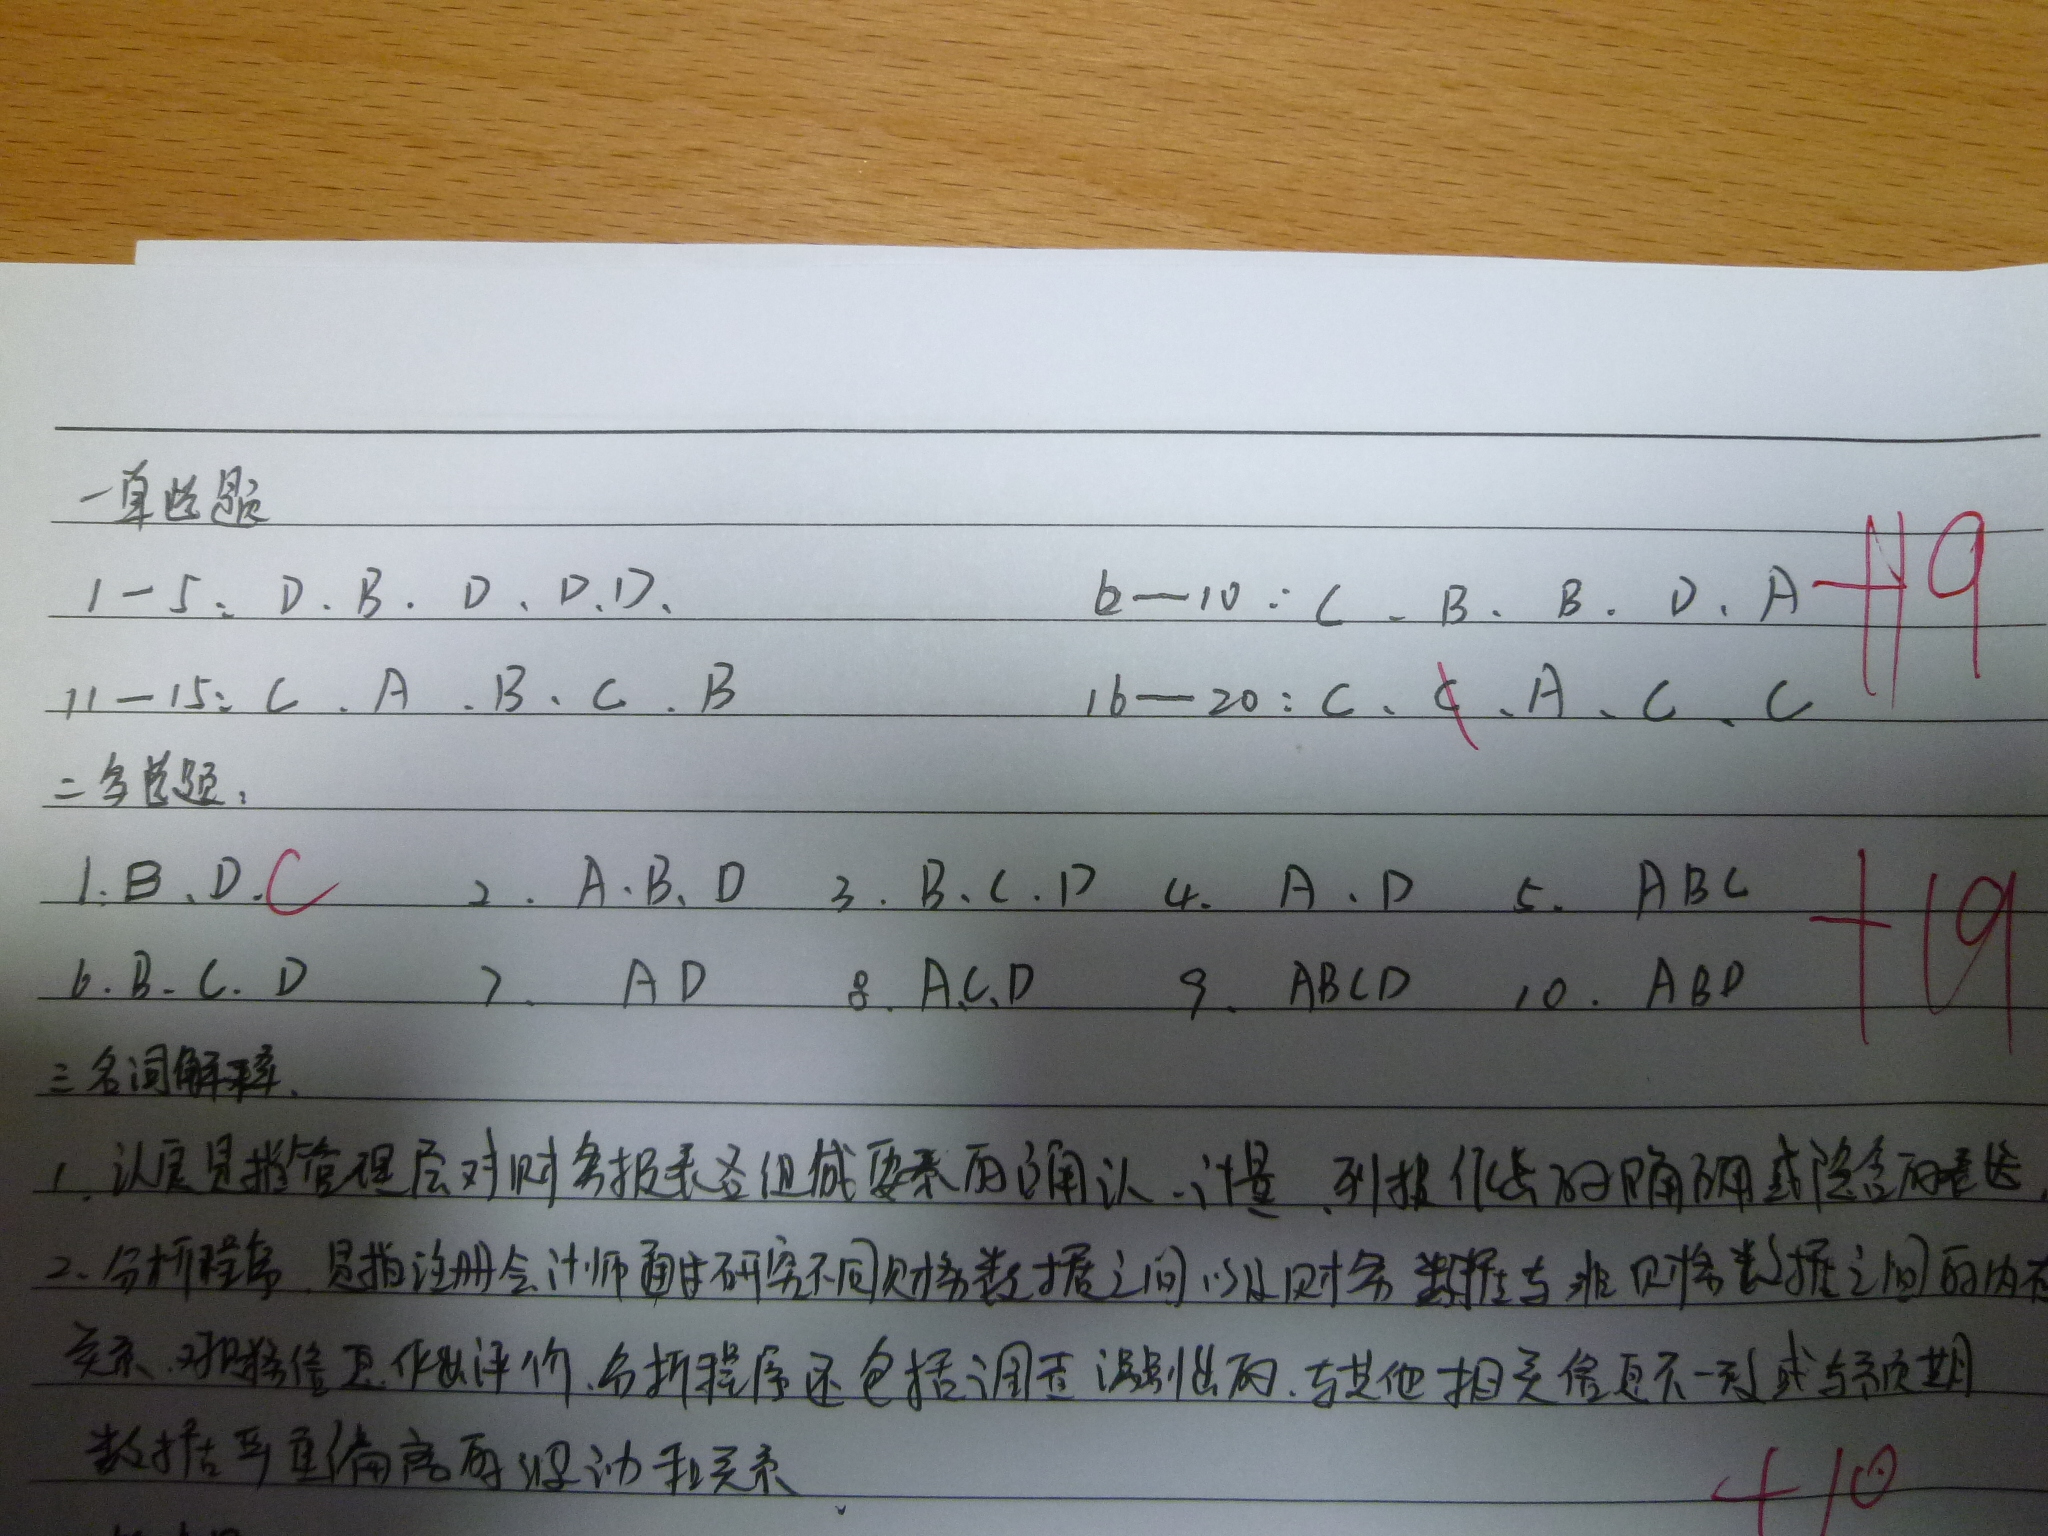 一单选题
1—5: D. B. D. D. D.
6—10: C. B. B. D. A +19
11—15: C. A. B. C. B
16—20: C. C. A. C. C
二多选题:
1. B. D. C 2. A. B. D 3. B. C. D 4. A. D 5. ABC +19
6. B. C. D 7. AD 8. A.C.D 9. ABCD 10. ABD
三名词解释.
1. 认定是指管理层对财务报表各组成要素的确认、计量、列报作出的明确或隐含的表达.
2. 分析程序 是指注册会计师通过研究不同财务数据之间以及财务数据与非财务数据之间的内在
关系、对财务信息作出评价、分析程序还包括调查识别出的、与其他相关信息不一致或与预期
数据严重偏离的波动和关系
+10